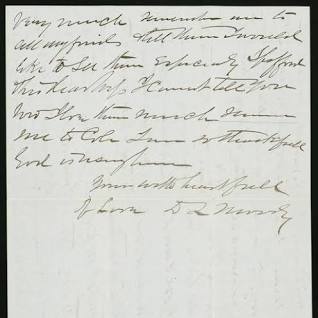 Very much remember me to
all my friends & tell them I would
like to see them especialy Spafford
I cannot tell you
how I love them much
me to Cole I am so thankfull
God is using him
Yours with heart full
of love D L Moody